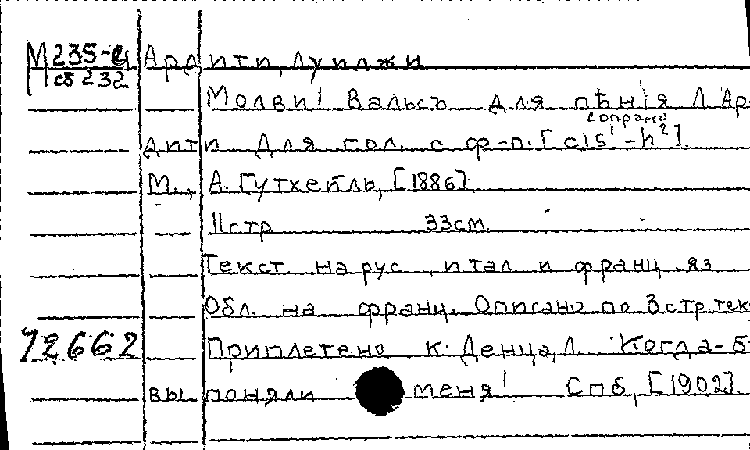 М 235-4 Ардити, Луиджи
сб 232
Молви! Вальсъ для пѣнія Л. Ар-
сопрано
дити Для гол. с ф-п. [cis¹-h²].
М., А. Гутхейль, [1886].
11 стр 33 см.
Текст на рус., итал и франц. яз
Обл. на франц. Описано по 3 стр. тек
72662 Приплетено к: Денца, Л. Когда-б
вы поняли меня! Спб, [1902].